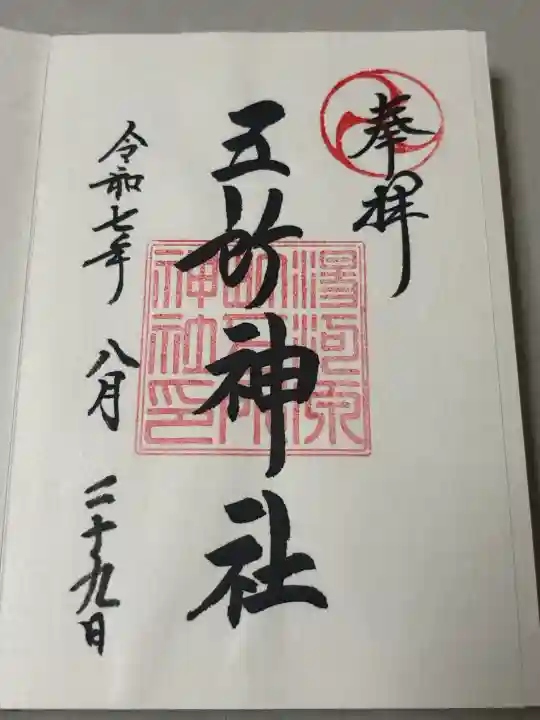 奉拝
五所神社
湯河原
五所
神社印
令和七年 八月 二十九日